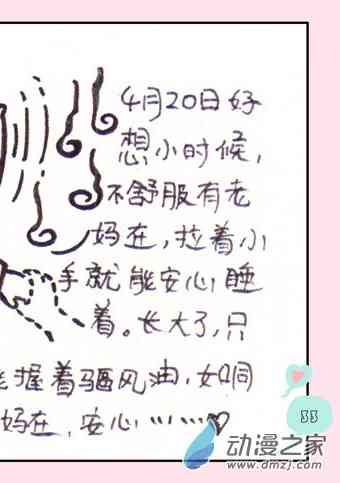 4月20日好
想小时候，
不舒服有老
妈在，拉着小
手就能安心睡
着。长大了，只
能握着驱风油，如同
妈在，安心……♡
55
动漫之家
www.dmzj.com